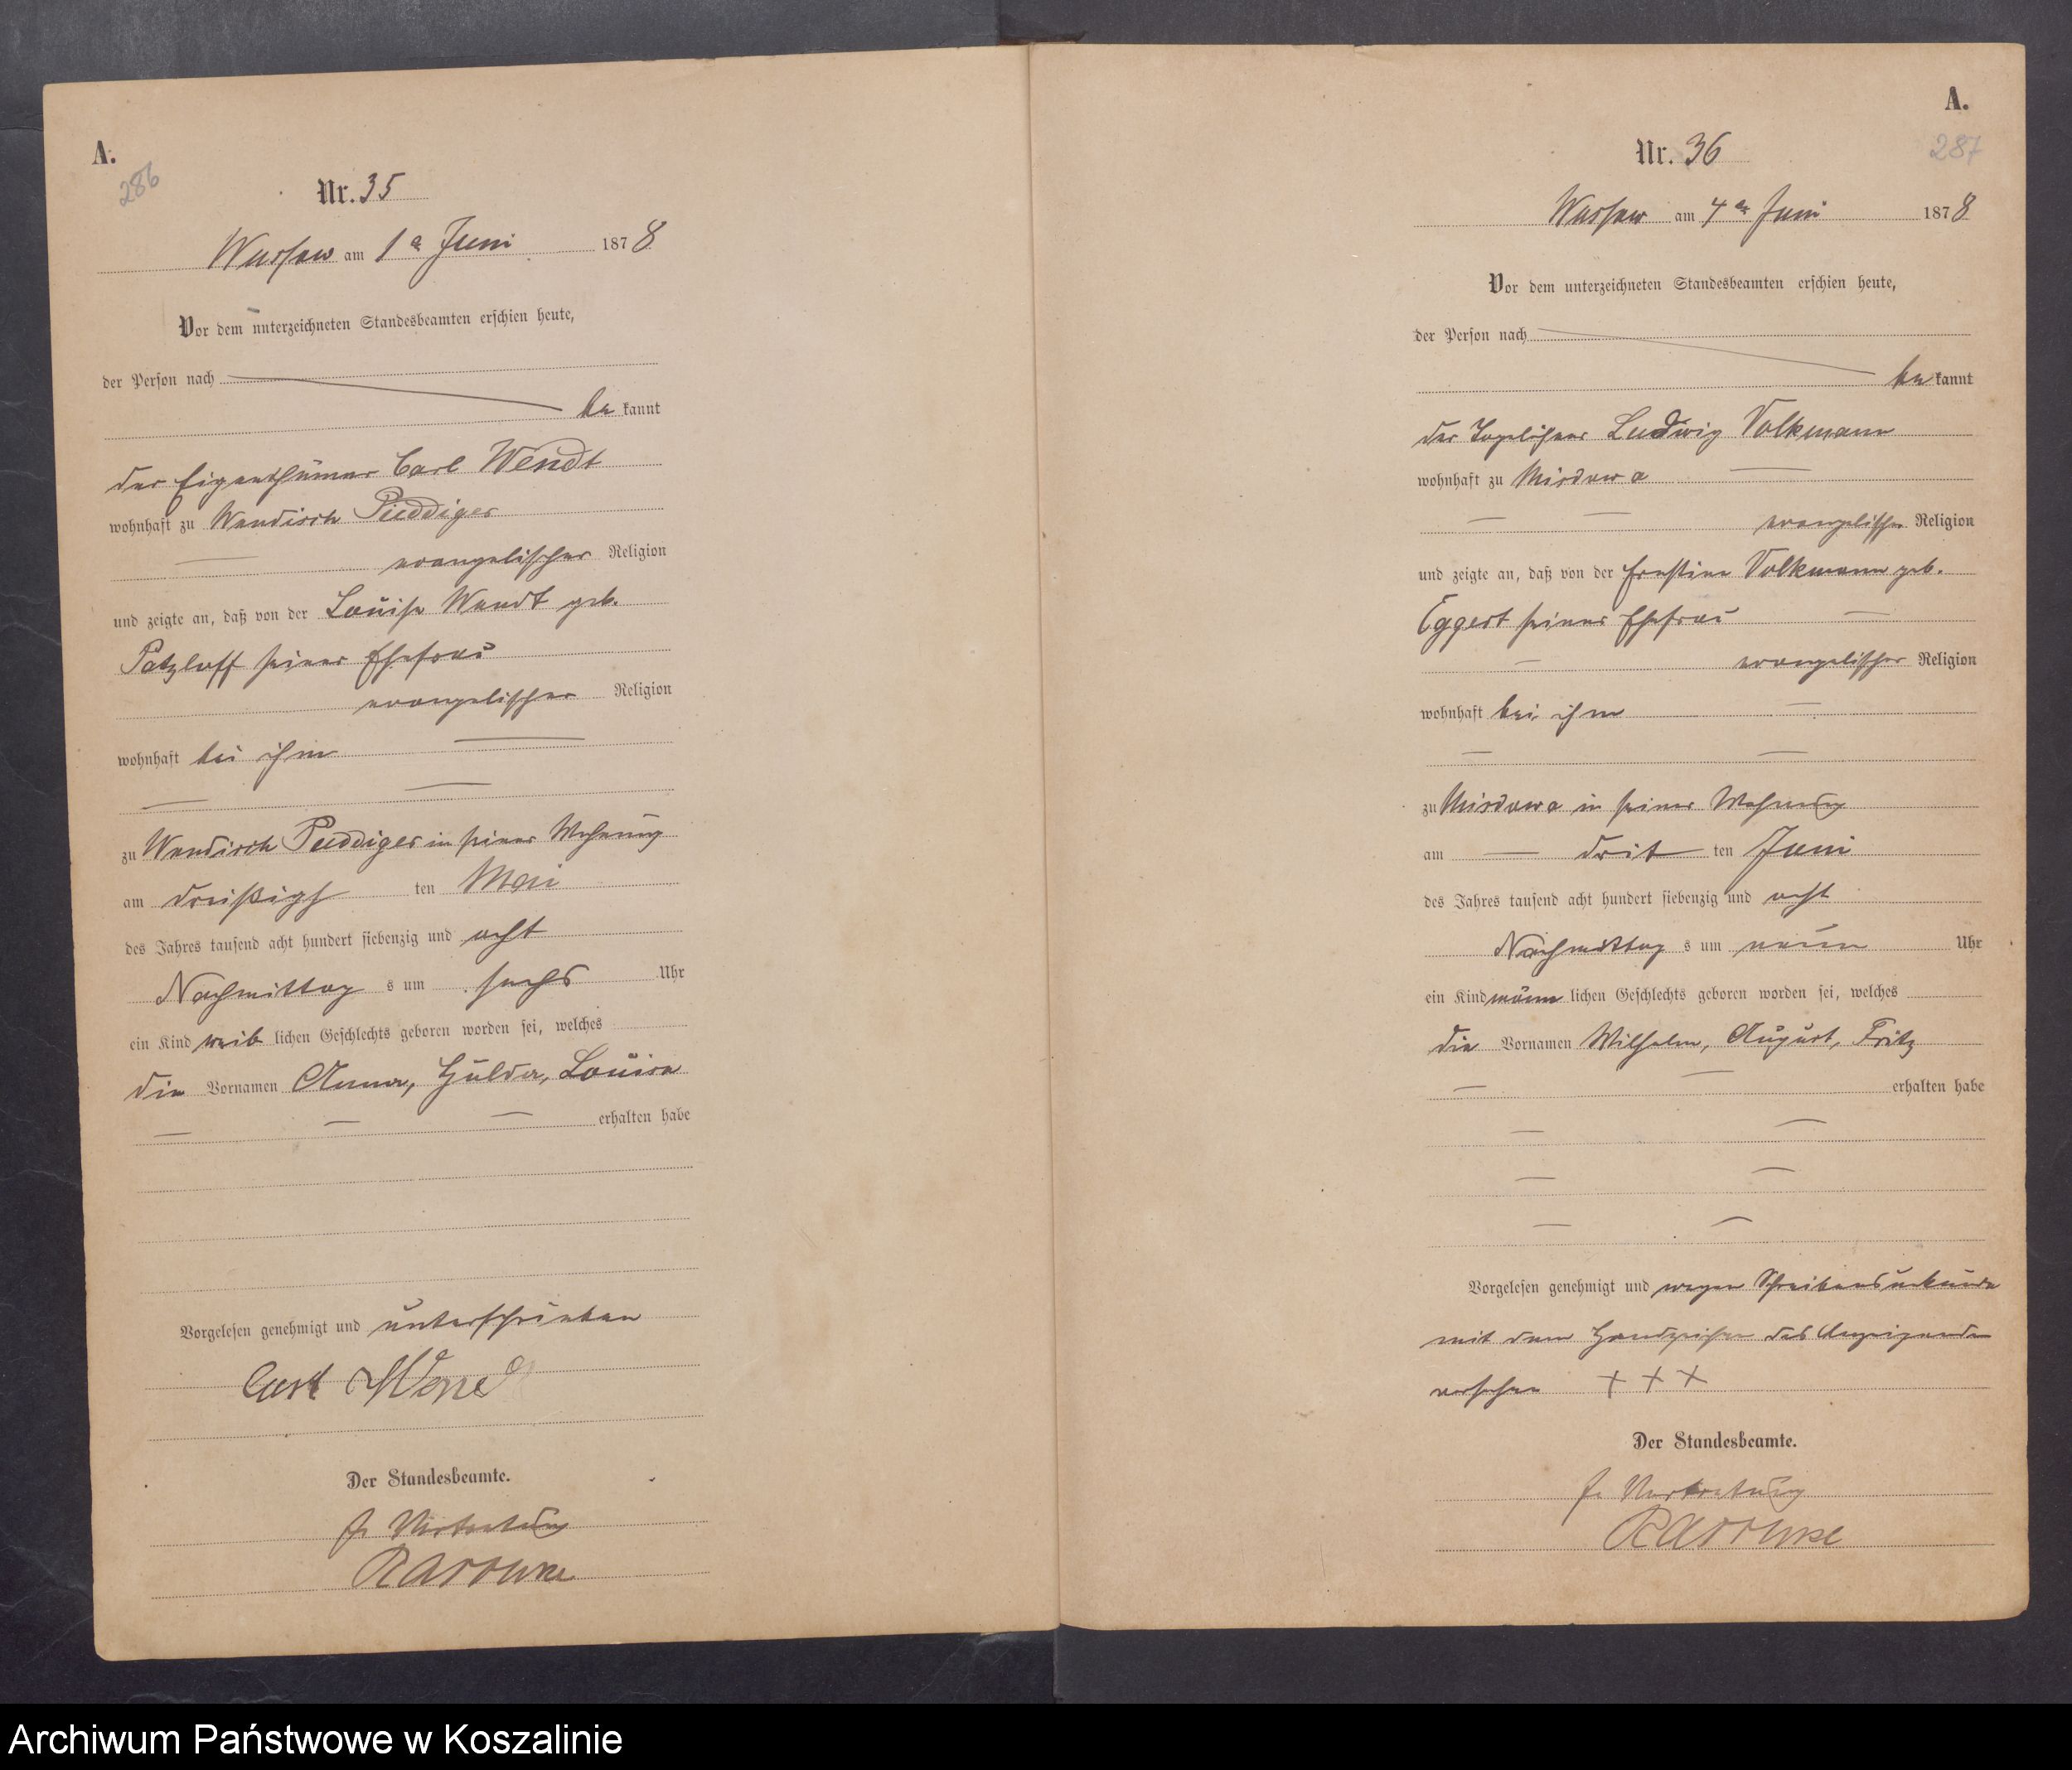 A.
286
Nr. 35
Wussow am 1 Juni 1878
Vor dem unterzeichneten Standesbeamten erschien heute,
der Person nach
be kannt
der Eigenthümer Carl Wendt
wohnhaft zu Wendisch Püddiger
evangelischer Religion
und zeigte an, daß von der Louise Wendt geb.
Patzloff seiner Ehefrau
evangelischer Religion
wohnhaft bei ihm
zu Wendisch Püddiger in seiner Wohnung
am dreißigs ten Mai
des Jahres tausend acht hundert siebenzig und acht
Nachmittag s um sechs Uhr
ein Kind weib lichen Geschlechts geboren worden sei, welches
die Vornamen Anna, Hulda, Louise
erhalten habe
Vorgelesen genehmigt und unterschrieben
Carl Wend
Der Standesbeamte.
In Vertretung
A.
287
Nr. 36
Wussow am 4 Juni 1878
Vor dem unterzeichneten Standesbeamten erschien heute,
der Person nach
be kannt
der Tagelöhner Ludwig Volkmann
wohnhaft zu Misdow a
evangelischer Religion
und zeigte an, daß von der Ernstine Volkmann geb.
Eggert seiner Ehefrau
evangelischer Religion
wohnhaft bei ihm
zu Misdow a in seiner Wohnung
am drit ten Juni
des Jahres tausend acht hundert siebenzig und acht
Nachmittag s um neun Uhr
ein Kind männ lichen Geschlechts geboren worden sei, welches
die Vornamen Wilhelm, August, Fritz
erhalten habe
Vorgelesen genehmigt und wegen Schreibensunkunde
mit dem Handzeichen des Anzeigenden
versehen + + +
Der Standesbeamte.
In Vertretung
Archiwum Państwowe w Koszalinie